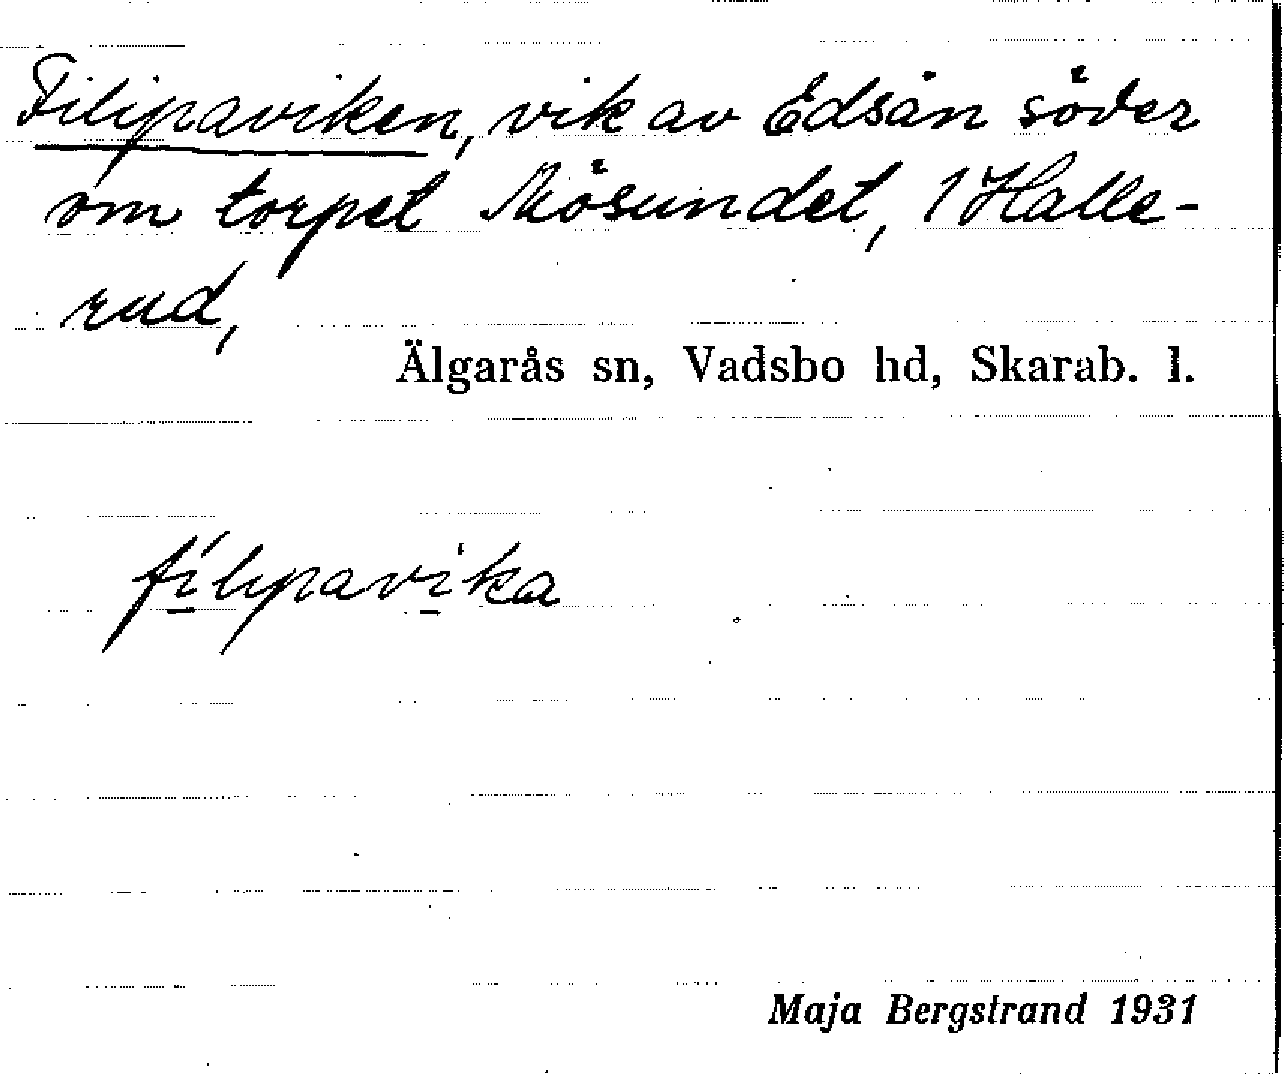 Filipaviken, vik av Edsån söder
om torpet Mösundet, 1 Halle-
rud,
Älgarås sn, Vadsbo hd, Skarab. l.
fílipavika
Maja Bergstrand 1931